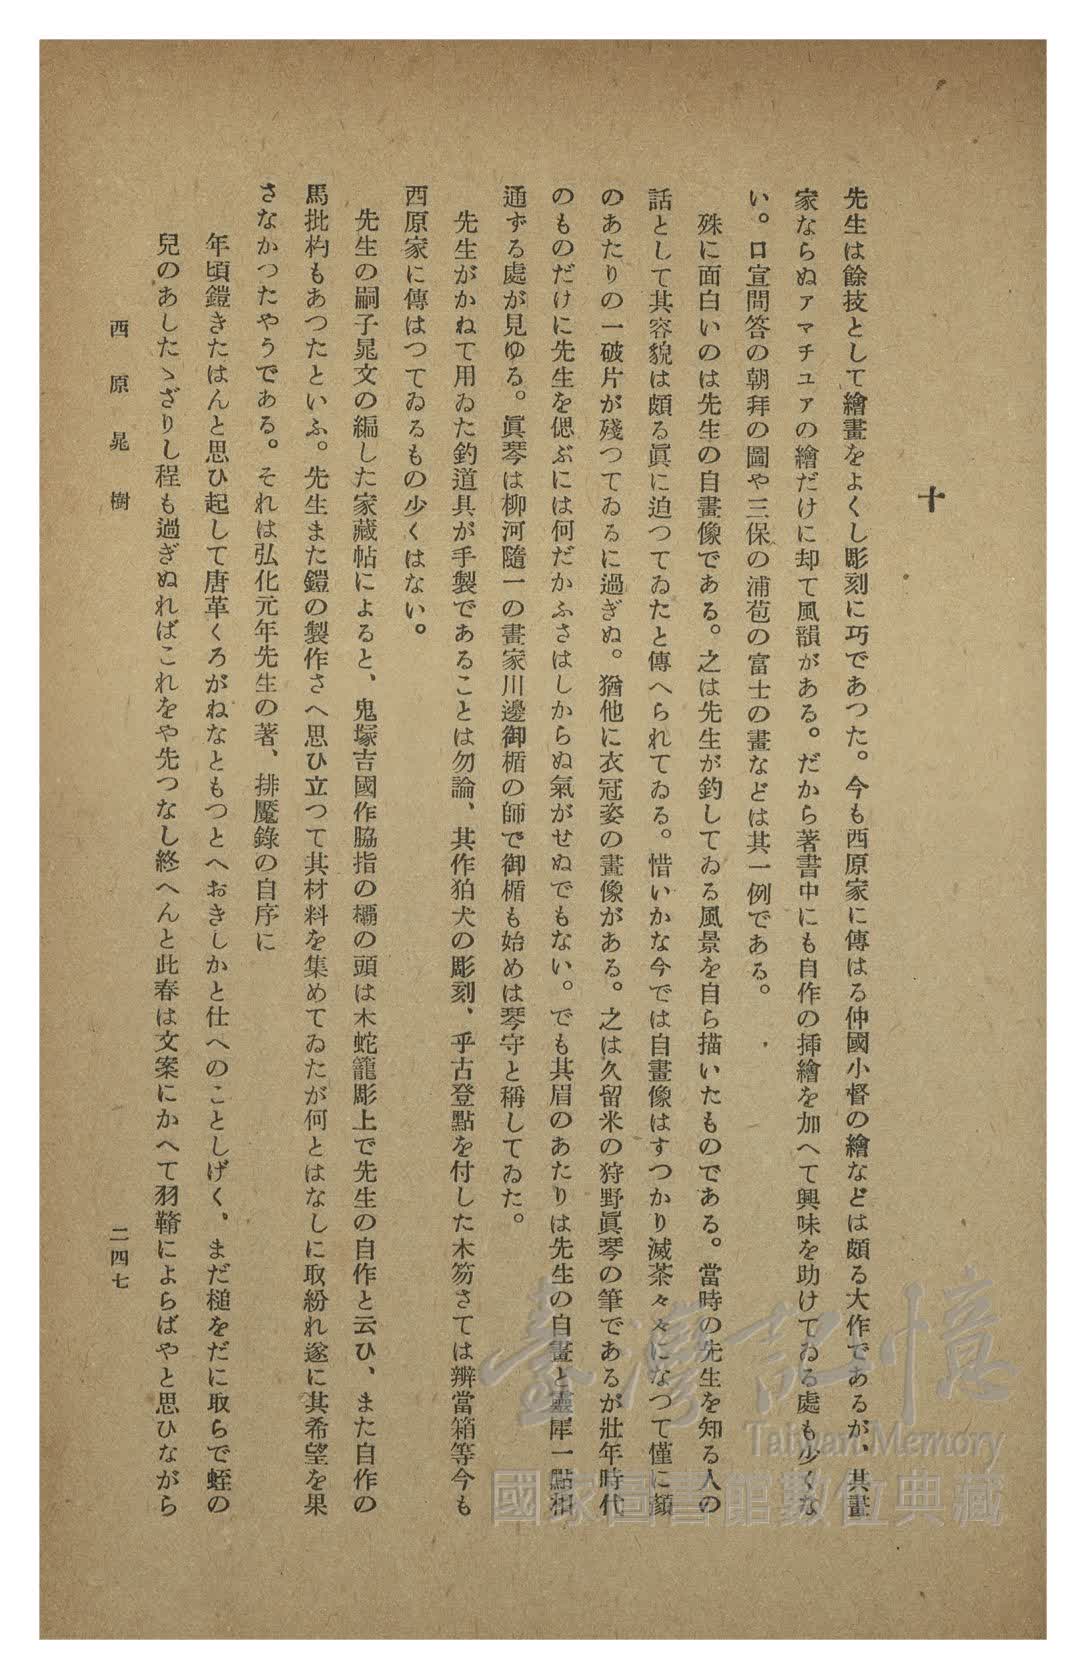 十
先生は餘技として繪畫をよくし彫刻に巧であつた。今も西原家に傳はる仲國小督の繪などは頗る大作であるが、其畫
家ならぬアマチユアの繪だけに却て風韻がある。だから著書中にも自作の揷繪を加へて興味を助けてゐる處も少くな
い。口宣問答の朝拜の圖や三保の浦苞の富士の畫などは其一例である。
殊に面白いのは先生の自畫像である。之は先生が釣してゐる風景を自ら描いたものである。當時の先生を知る人の
話として其容貌は頗る眞に迫つてゐたと傳へられてゐる。惜いかな今では自畫像はすつかり滅茶々々になつて僅に顏
のあたりの一破片が殘つてゐるに過ぎぬ。猶他に衣冠姿の畫像がある。之は久留米の狩野眞琴の筆であるが壯年時代
のものだけに先生を偲ぶには何だかふさはしからぬ氣がせぬでもない。でも其眉のあたりは先生の自畫と靈犀一點相
通ずる處が見ゆる。眞琴は柳河隨一の畫家川邊御楯の師で御楯も始めは琴守と稱してゐた。
先生がかねて用ゐた釣道具が手製であることは勿論、其作狛犬の彫刻、乎古登點を付した木笏さては辨當箱等今も
西原家に傳はつてゐるもの少くはない。
先生の嗣子晁文の編した家藏帖によると、鬼塚吉國作脇指の欛の頭は木蛇籠彫上で先生の自作と云ひ、また自作の
馬批杓もあつたといふ。先生また鎧の製作さへ思ひ立つて其材料を集めてゐたが何とはなしに取紛れ遂に其希望を果
さなかつたやうである。それは弘化元年先生の著、排魘錄の自序に
年頃鎧きたはんと思ひ起して唐革くろがねなともつとへおきしかと仕へのことしげく、まだ槌をだに取らで蛭の
兒のあしたゝざりし程も過ぎぬればこれをや先つなし終へんと此春は文案にかへて羽鞴によらばやと思ひながら
西原晁樹
二四七
臺灣記憶
Taiwan Memory
國家圖書館數位典藏